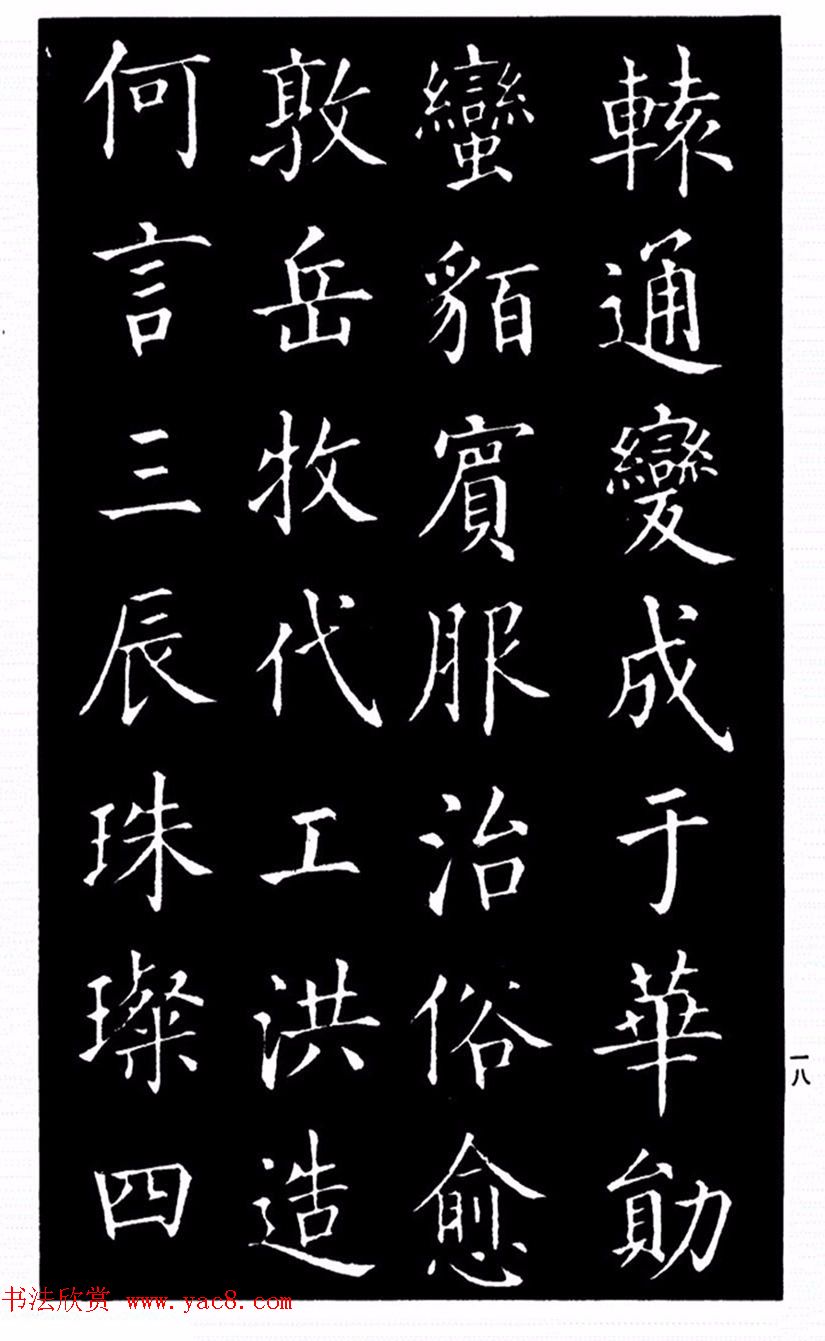 轅通變成于華勛
蠻貊賓服治俗愈
敦岳牧代工洪造
何言三辰珠璨四
一八
书法欣赏 www.yac8.com